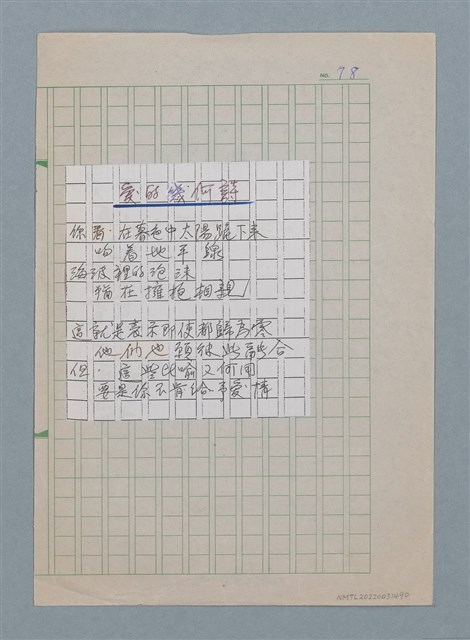 NO. 78
愛的幾何詩
你看·在暮色中太陽跪下來
吻着地平線
海波裡的泡沫
猶在擁抱相親
這就是表示即使都歸為零
他們也願彼此融合
但·這些比喻又何用
要是你不肯給予愛情
NMTL20220031490